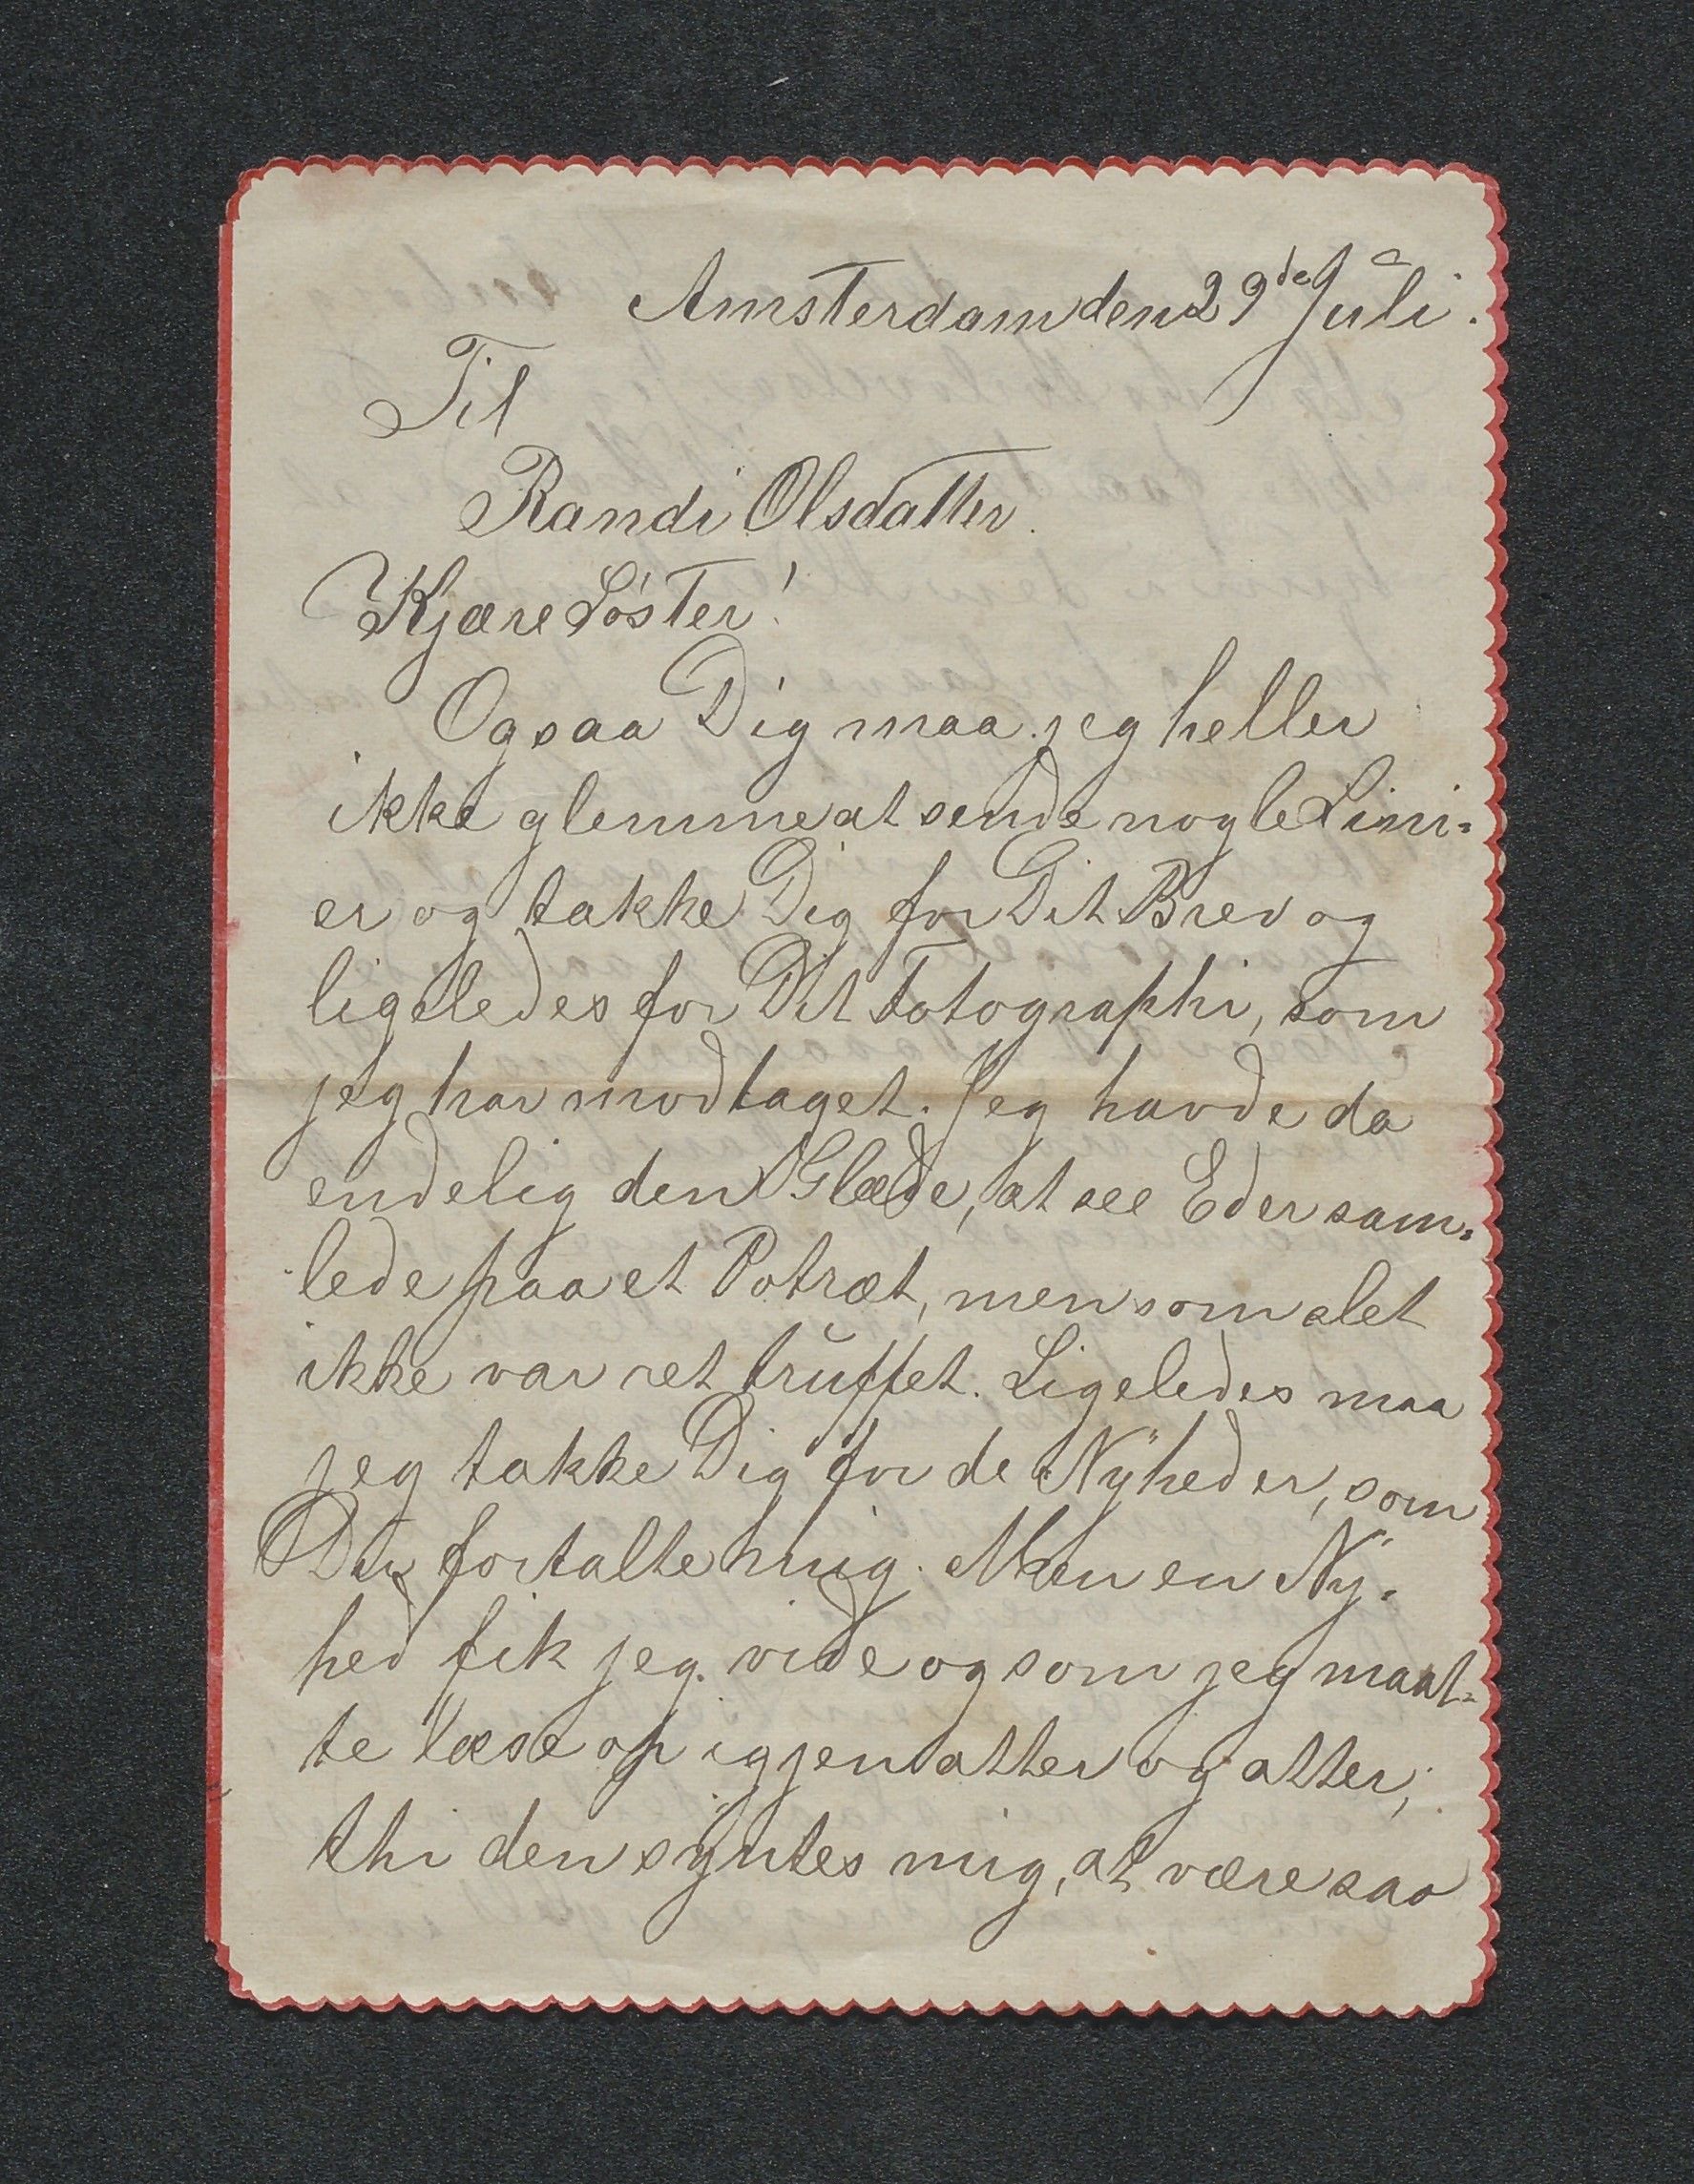 Amsterdam den 29de Juli.
Til
Randi Olsdatter.
Kjære Söster!
Ogsaa Dig maa jeg heller
ikke glemme at sende nogle Lini=
er og takke Dig for Dit Brev og
ligeledes for Dit Fotographi, som
jeg har modtaget. Jeg havde da
endelig den Glæde, at see Eder sam=
lede paa et Potræt, men som alet
ikke var ret truffet. Ligeledes maa
jeg takke Dig for de Nyheder, som
Du fortalte mig. Men en Ny=
hed fik jeg vide og som jeg maat=
te læse op iggjen atter og atter,
thi den syntes mig, at være saa